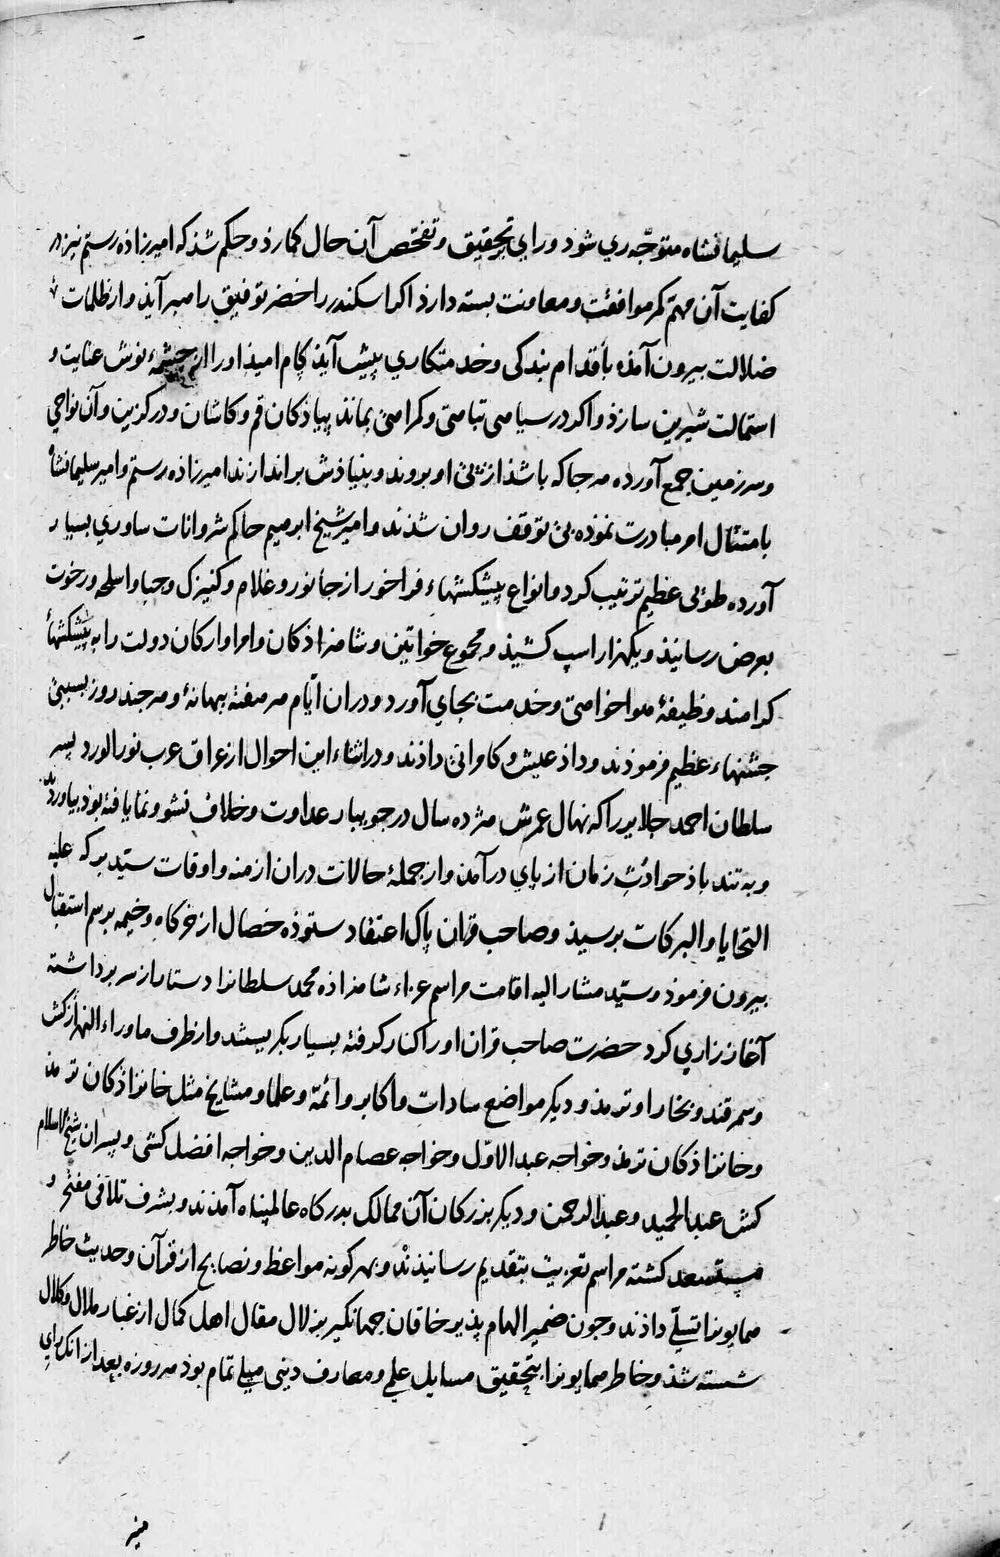 سلیمانشاه متوجّه ری شود و رای بتحقیق و تفحّص آن حال کمارد و حکم شد که امیرزاده رستم نیز در
کفایت آن مهمّ کمر موافقت و معاونت بسته دارذ اکر اسکندر را خضر توفیق راهبر آیذ و از ظلمات
ضلالت بیرون آمذه باقدام بندکی و خدمتکاری پیش آیذ کام امیذ او را از چشمهٔ نوش عنایت و
استمالت شیرین سازذ و اکر در سیاهی تباهی و کمراهی بماند پیاذکان قم و کاشان و درکزین و آن نواحی
و سرزمین جمع آورده هر جا که باشذ از پی او بروند و بنیاذش براندازند امیرزاذه رستم و امیر سلیمانشاه
بامتثال امر مبادرت نموذه بی توقف روان شذند و امیر شیخ ابرهیم حاکم شروانات ساوری بسیار
آورده طوئی عظیم ترتیب کرد و انواع پیشکشهاء فراخور از جانور و غلام و کنیزک و جبا و اسلحه و رخوت
بعرض رسانیذ و یکهزار اسپ کشیذ و مجموع خواتین و شاهزاذکان و امرا و ارکان دولت را به پیشکشهاء
کرامند وظیفهٔ هواخواهی و خدمت بجای آورد و دران ایّام هر هفته ببهانهٔ و هر چند روز بسببی
جشنهاء عظیم فرموذند و داذ عیش و کامرانی داذند و در اثناء این احوال از عراق عرب نور الورد پسر
سلطان احمد جلایر را که نهال عمرش هژده سال در جویبار عداوت و خلاف نشو و نما یافته بوذ بیاوردند
و به تند باذ حوادث زمان از پای درآمذ و از جملهٔ حالات دران ازمنه و اوقات سیّد برکه علیه
التحایا و البرکات برسیذ و صاحب قران پاک اعتقاد ستوذه خصال از خرکاه و خیمه برسم استقبال
بیرون فرموذ و سیّد مشار الیه اقامت مراسم عزاء شاهزاذه محمد سلطانرا دستار از سر برداشته
آغاز زاری کرد حضرت صاحب قران او را کنار کرفته بسیار بکریستند و از طرف ماوراء النهر از کش
و سمرقند و بخارا و ترمذ و دیکر مواضع سادات و اکابر و ائمّه و علما و مشایخ مثل خانزاذکان ترمذ
و خانزاذکان ترمذ و خواجه عبد الاوّل و خواجه عصام الدین و خواجه افضل کشی و پسران شیخ الاسلام
کش عبد الحمید و عبد الرحمن و دیکر بزرکان آن ممالک بدرکاه عالمپناه آمذند و بشرف تلاقی مفتخر و
مستسعد کشته مراسم تعزیت بتقدیم رسانیذند و بهر کونه مواعظ و نصایح از قرآن و حدیث خاطر
همایونرا تسلّی داذند و چون ضمیر الهام پذیر خاقان جهانکیر بزلال مقال اهل کمال از غبار ملال و کلال
شسته شذ و خاطر همایونرا بتحقیق مسایل علمی و معارف دینی میلی تمام بوذ هر روزه بعد از آنک برای
منیر